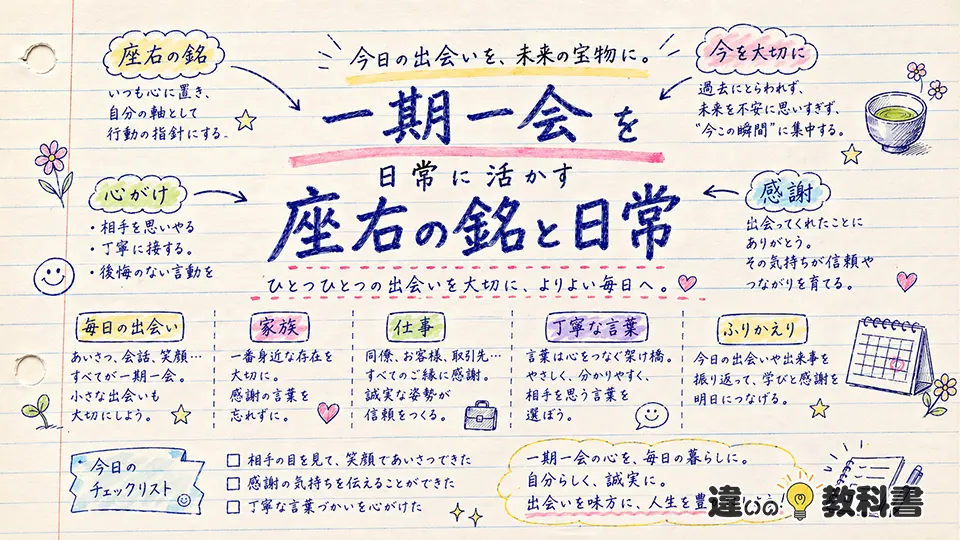 今日の出会いを、未来の宝物に。
一期一会を
日常に活かす
座右の銘と日常
ひとつひとつの出会いを大切に、よりよい毎日へ。
座右の銘
いつも心に置き、
自分の軸として
行動の指針にする。
今を大切に
過去にとらわれず、
未来を不安に思いすぎず、
"今この瞬間"に集中する。
心がけ
・相手を思いやる
・丁寧に接する。
・後悔のない言動を
感謝
出会ってくれたことに
ありがとう。
その気持ちが信頼や
つながりを育てる。
毎日の出会い
あいさつ、会話、笑顔…
すべてが一期一会。
小さな出会いも
大切にしよう。
家族
一番身近な存在を
大切に。
感謝の言葉を
忘れずに。
仕事
同僚、お客様、取引先…
すべてのご縁に感謝。
誠実な姿勢が
信頼をつくる。
丁寧な言葉
言葉は心をつなぐ架け橋。
やさしく、分かりやすく、
相手を思う言葉を
選ぼう。
ふりかえり
今日の出会いや出来事を
振り返って、学びと感謝を
明日につなげる。
今日の
チェックリスト
□ 相手の目を見て、笑顔であいさつできた
□ 感謝の気持ちを伝えることができた
□ 丁寧な言葉づかいを心がけた
一期一会の心を、毎日の暮らしに。
自分らしく、誠実に。
出会いを味方に、人生を豊
違いの教科書